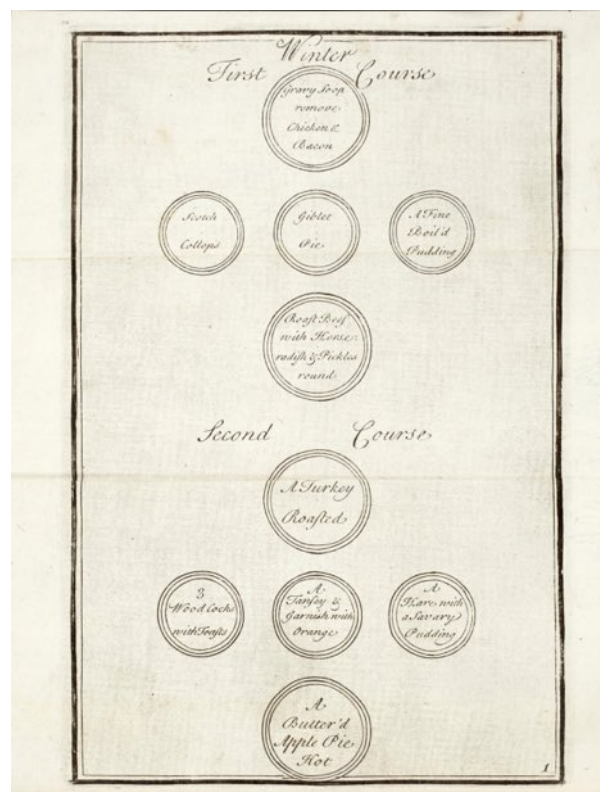 Winter
First Course
Gravy Soop
remove
Chicken &
Bacon
Scotch
Collops
Giblet
Pie
A Fine
Boil'd
Pudding
Roaſt Beef
with Horse-
radiſh & Pickles
round
Second Course
A Turkey
Roaſted
3
Wood Cocks
with Toaſts
A
Tanſey &
Garnish with
Orange
A
Hare with
a Savary
Pudding
A
Butter'd
Apple Pie
Hot
1